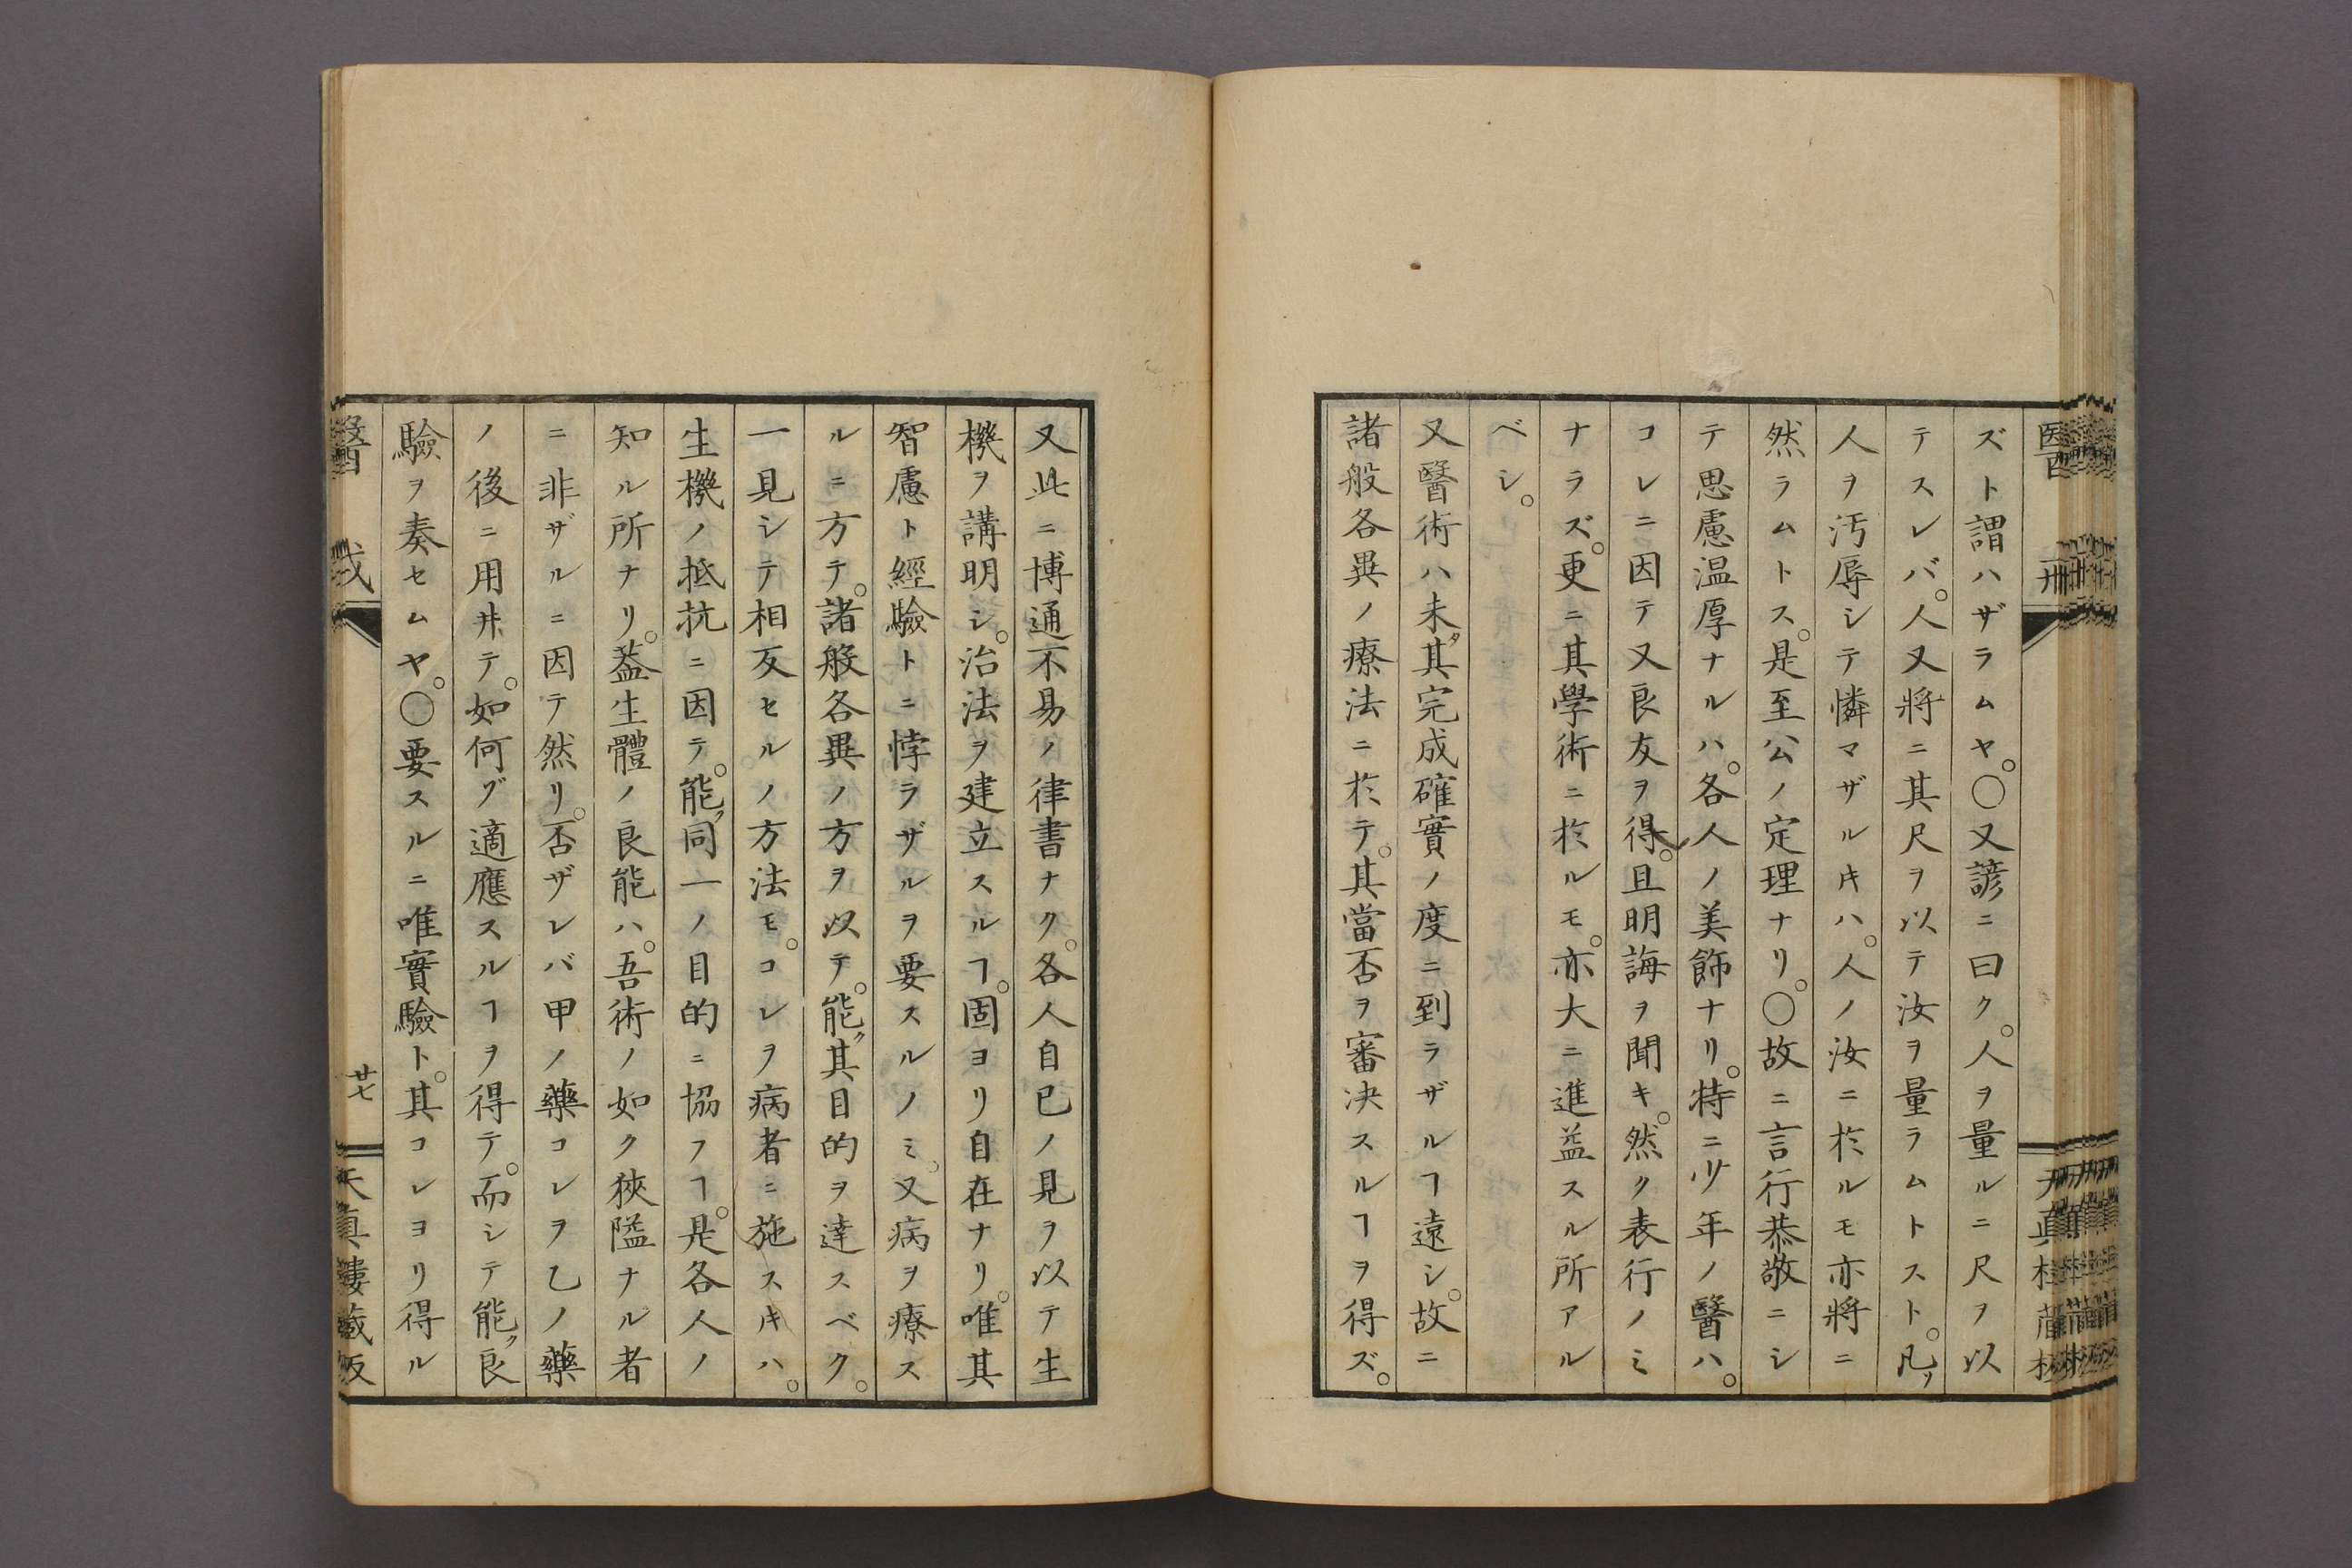 ズト謂ハザラムヤ。○又諺ニ曰ク。人ヲ量ルニ尺ヲ以
テスレバ。人又將ニ其尺ヲ以テ汝ヲ量ラムトスト。凡ソ
人ヲ汚辱シテ憐マザルキハ。人ノ汝ニ於ルモ亦將ニ
然ラムトス。是至公ノ定理ナリ。○故ニ言行恭敬ニシ
テ思慮温厚ナルハ。各人ノ美飾ナリ。特ニ少年ノ醫ハ。
コレニ因テ又良友ヲ得。且明誨ヲ聞キ。然ク表行ノミ
ナラズ。更ニ其學術ニ於ルモ。亦大ニ進益スル所アル
ベシ。
又醫術ハ未タ其完成確實ノ度ニ到ラザルヿ遠シ。故ニ
諸般各異ノ療法ニ於テ。其當否ヲ審决スルヿヲ得ズ。
又此ニ博通不易ノ律書ナク。各人自己ノ見ヲ以テ生
機ヲ講明シ。治法ヲ建立スルヿ。固ヨリ自在ナリ。唯其
智慮ト經驗トニ悖ラザルヲ要スルノミ。又病ヲ療ス
ルニ方テ。諸般各異ノ方ヲ以テ。能ク其目的ヲ達スベク。
一見シテ相反セルノ方法モ。コレヲ病者ニ施スキハ。
生機ノ抵抗ニ因テ。能ク同一ノ目的ニ協フヿ。是各人ノ
知ル所ナリ。葢生體ノ良能ハ。吾術ノ如ク狹隘ナル者
ニ非ザルニ因テ然リ。否ザレバ甲ノ藥コレヲ乙ノ藥
ノ後ニ用井テ。如何グ適應スルヿヲ得テ。而シテ能ク良
驗ヲ奏セムヤ。○要スルニ唯實驗ト。其コレヨリ得ル
醫戒
廿七
天真樓藏版